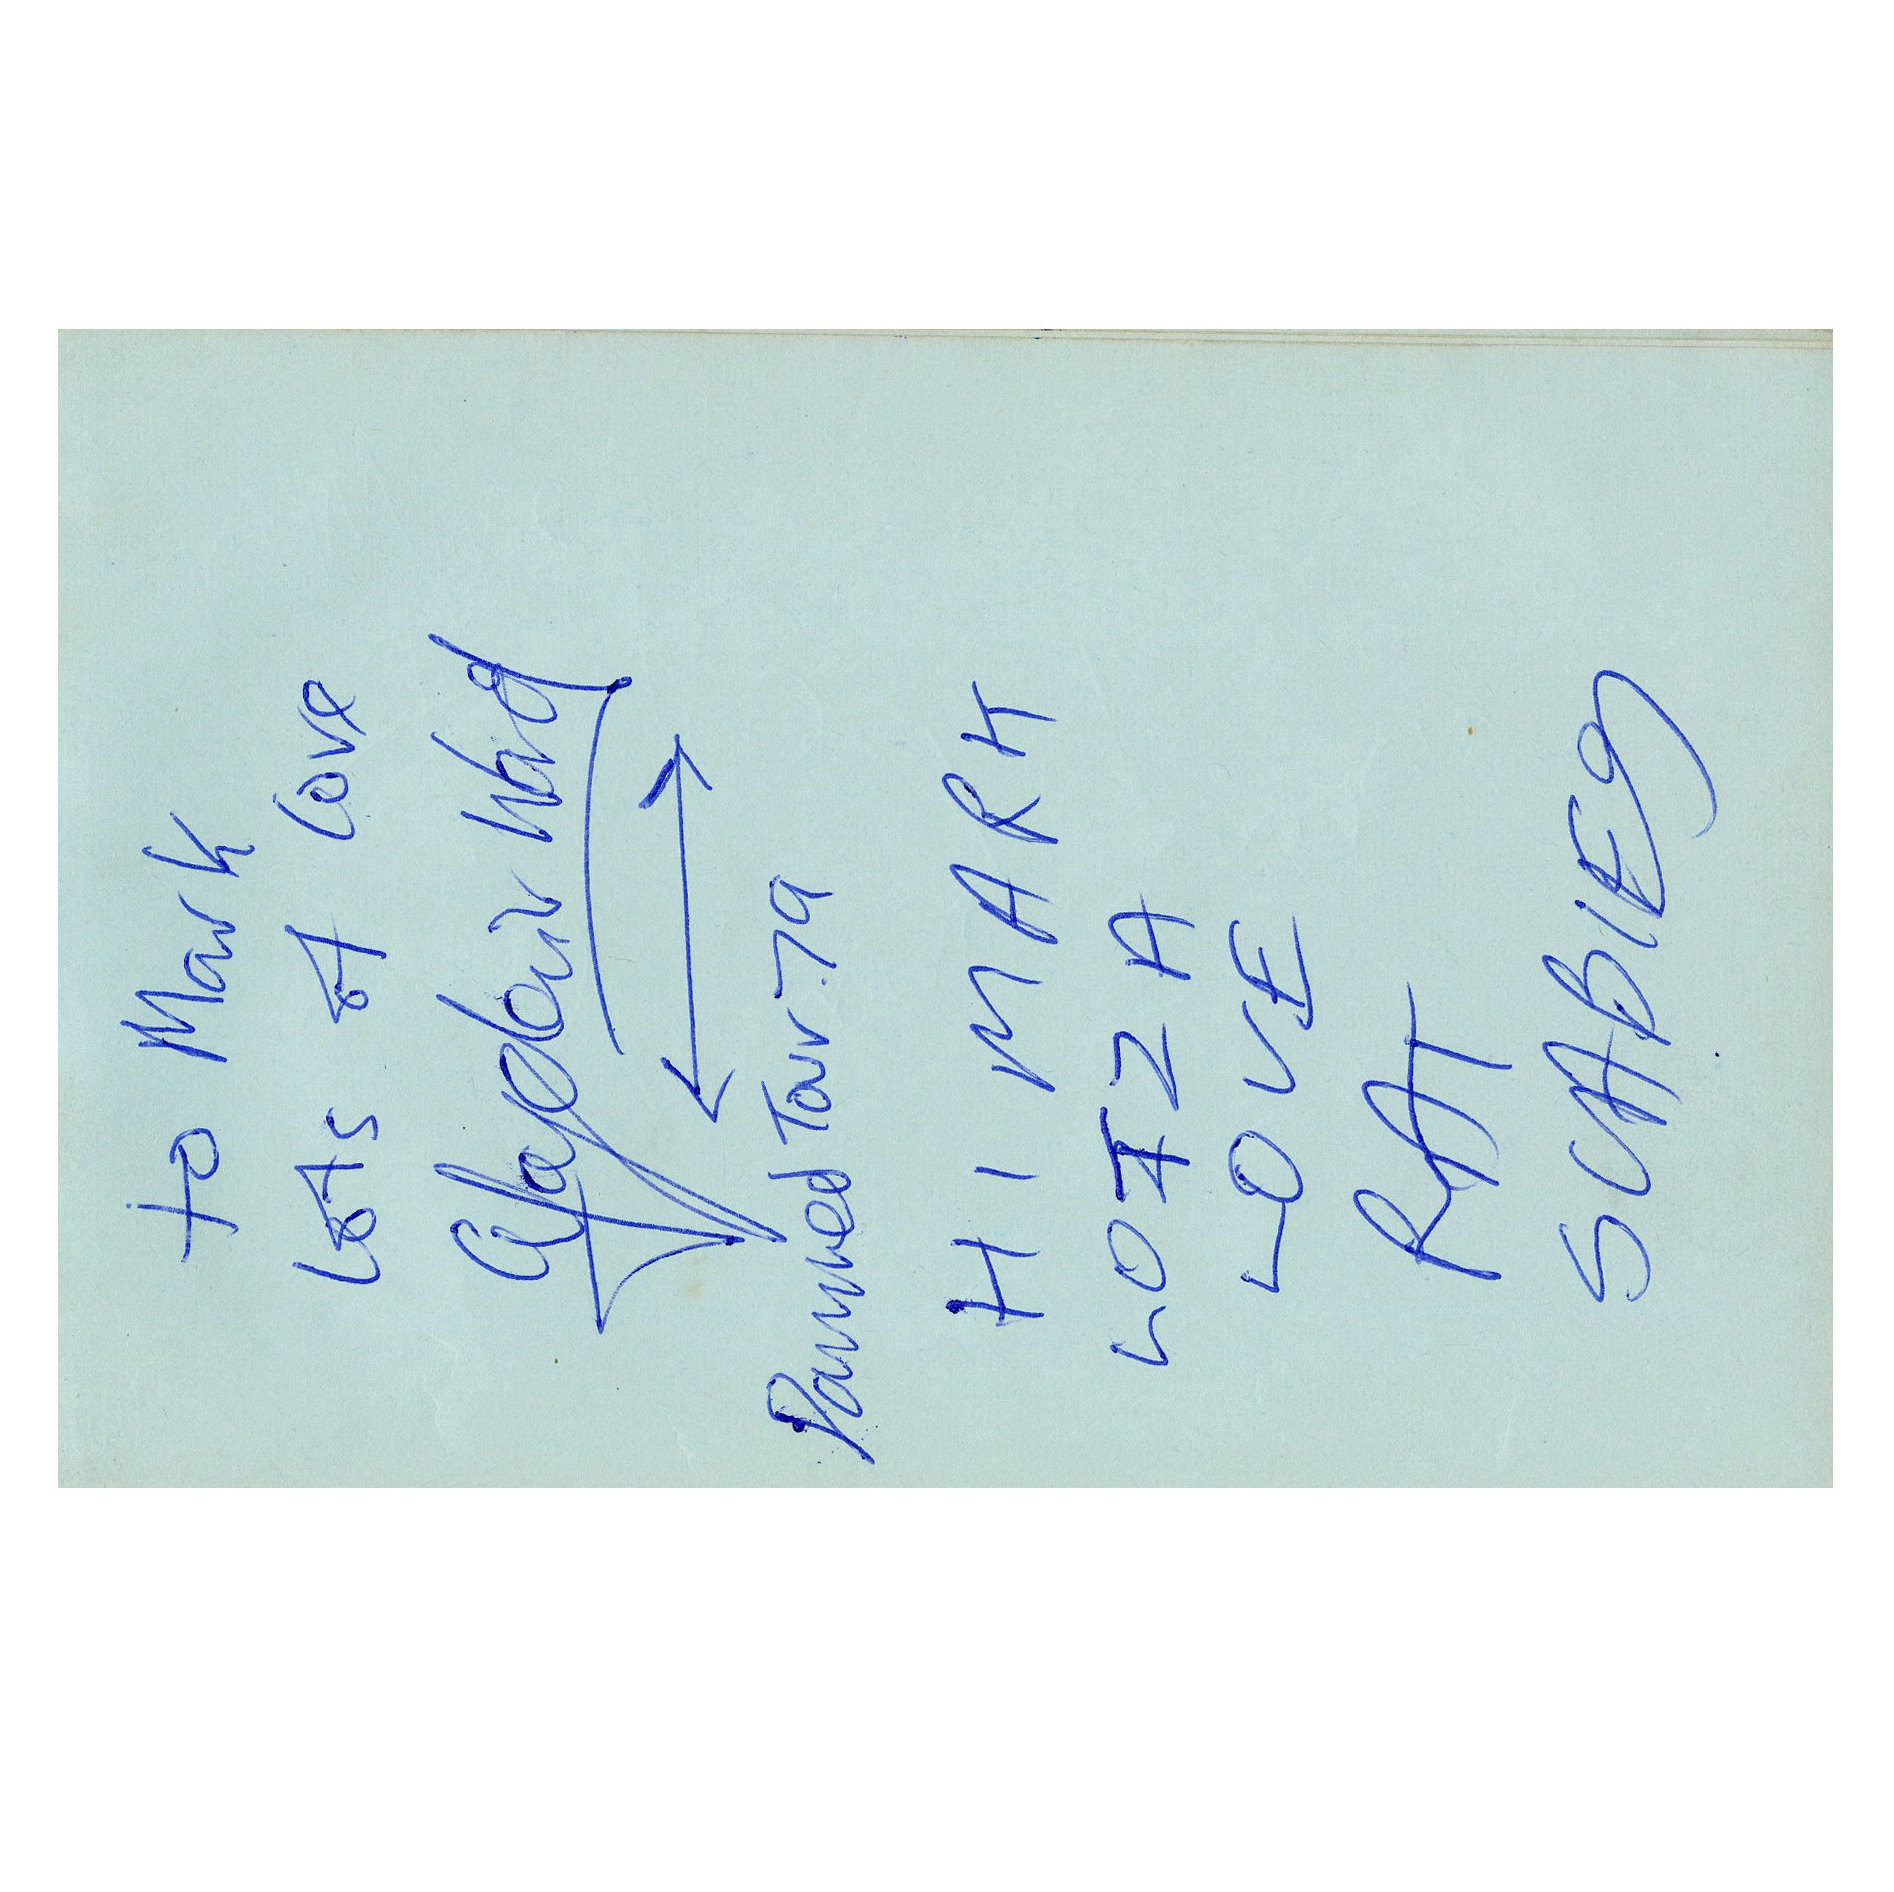 to Mark
Lots of Love
Alasdair Ward
Damned Tour 79
HI MARK
LOTZA
LOVE
RAT
SCABIES